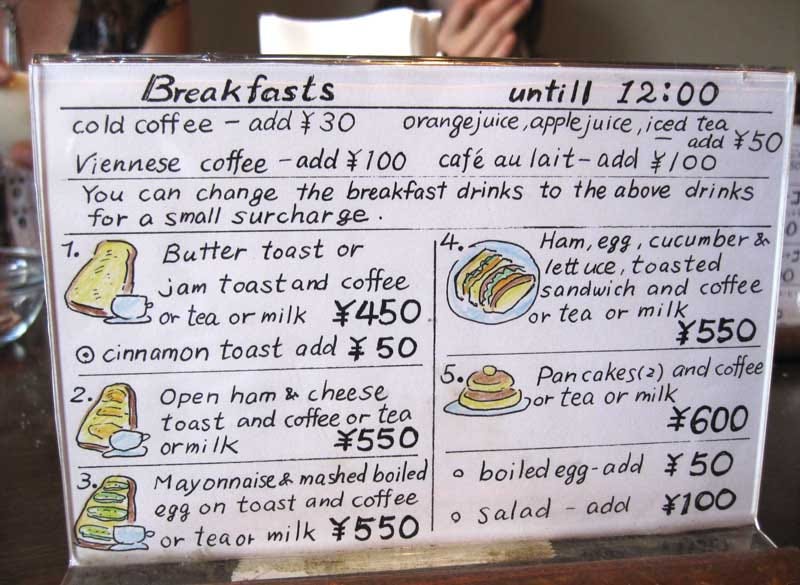 Breakfasts untill 12:00
cold coffee - add ¥30 orange juice, apple juice, iced tea
- add ¥50
Viennese coffee - add ¥100 café au lait - add ¥100
You can change the breakfast drinks to the above drinks
for a small surcharge.
1. Butter toast or
jam toast and coffee
or tea or milk ¥450
cinnamon toast add ¥50
2. Open ham & cheese
toast and coffee or tea
or milk ¥550
3. Mayonnaise & mashed boiled
egg on toast and coffee
or tea or milk ¥550
4. Ham, egg, cucumber &
lettuce, toasted
sandwich and coffee
or tea or milk
¥550
5. Pancakes(2) and coffee
or tea or milk
¥600
boiled egg - add ¥50
salad - add ¥100